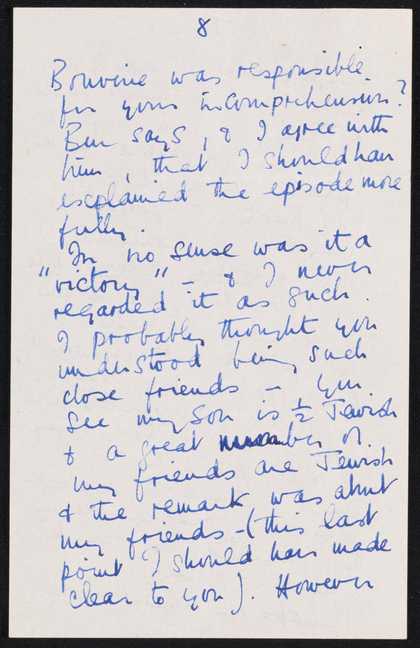 8
Bouverie was responsible
for your incomprehension?
Ben says, & I agree with
him, that I should have
explained the episode more
fully.
In no sense was it a
"victory" – & I never
regarded it as such.
I probably thought you
understood being such
close friends – you
see my son is ½ Jewish
& a great number of
my friends are Jewish
& the remark was about
my friends – (this last
point I should have made
clear to you). However